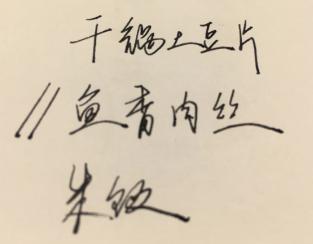 干锅土豆片
//鱼香肉丝
米饭